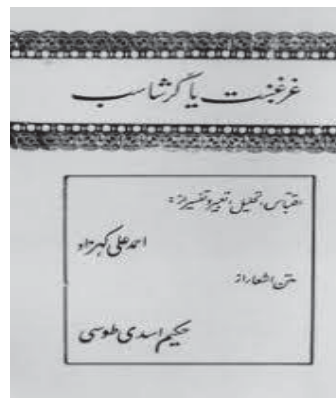 غرغښت یا گرشاسب
مقتباس، تحلیل، تعبیر و تفسیر از:
احمد علی کهزاد
متن اشعار از
حکیم اسدی طوسی